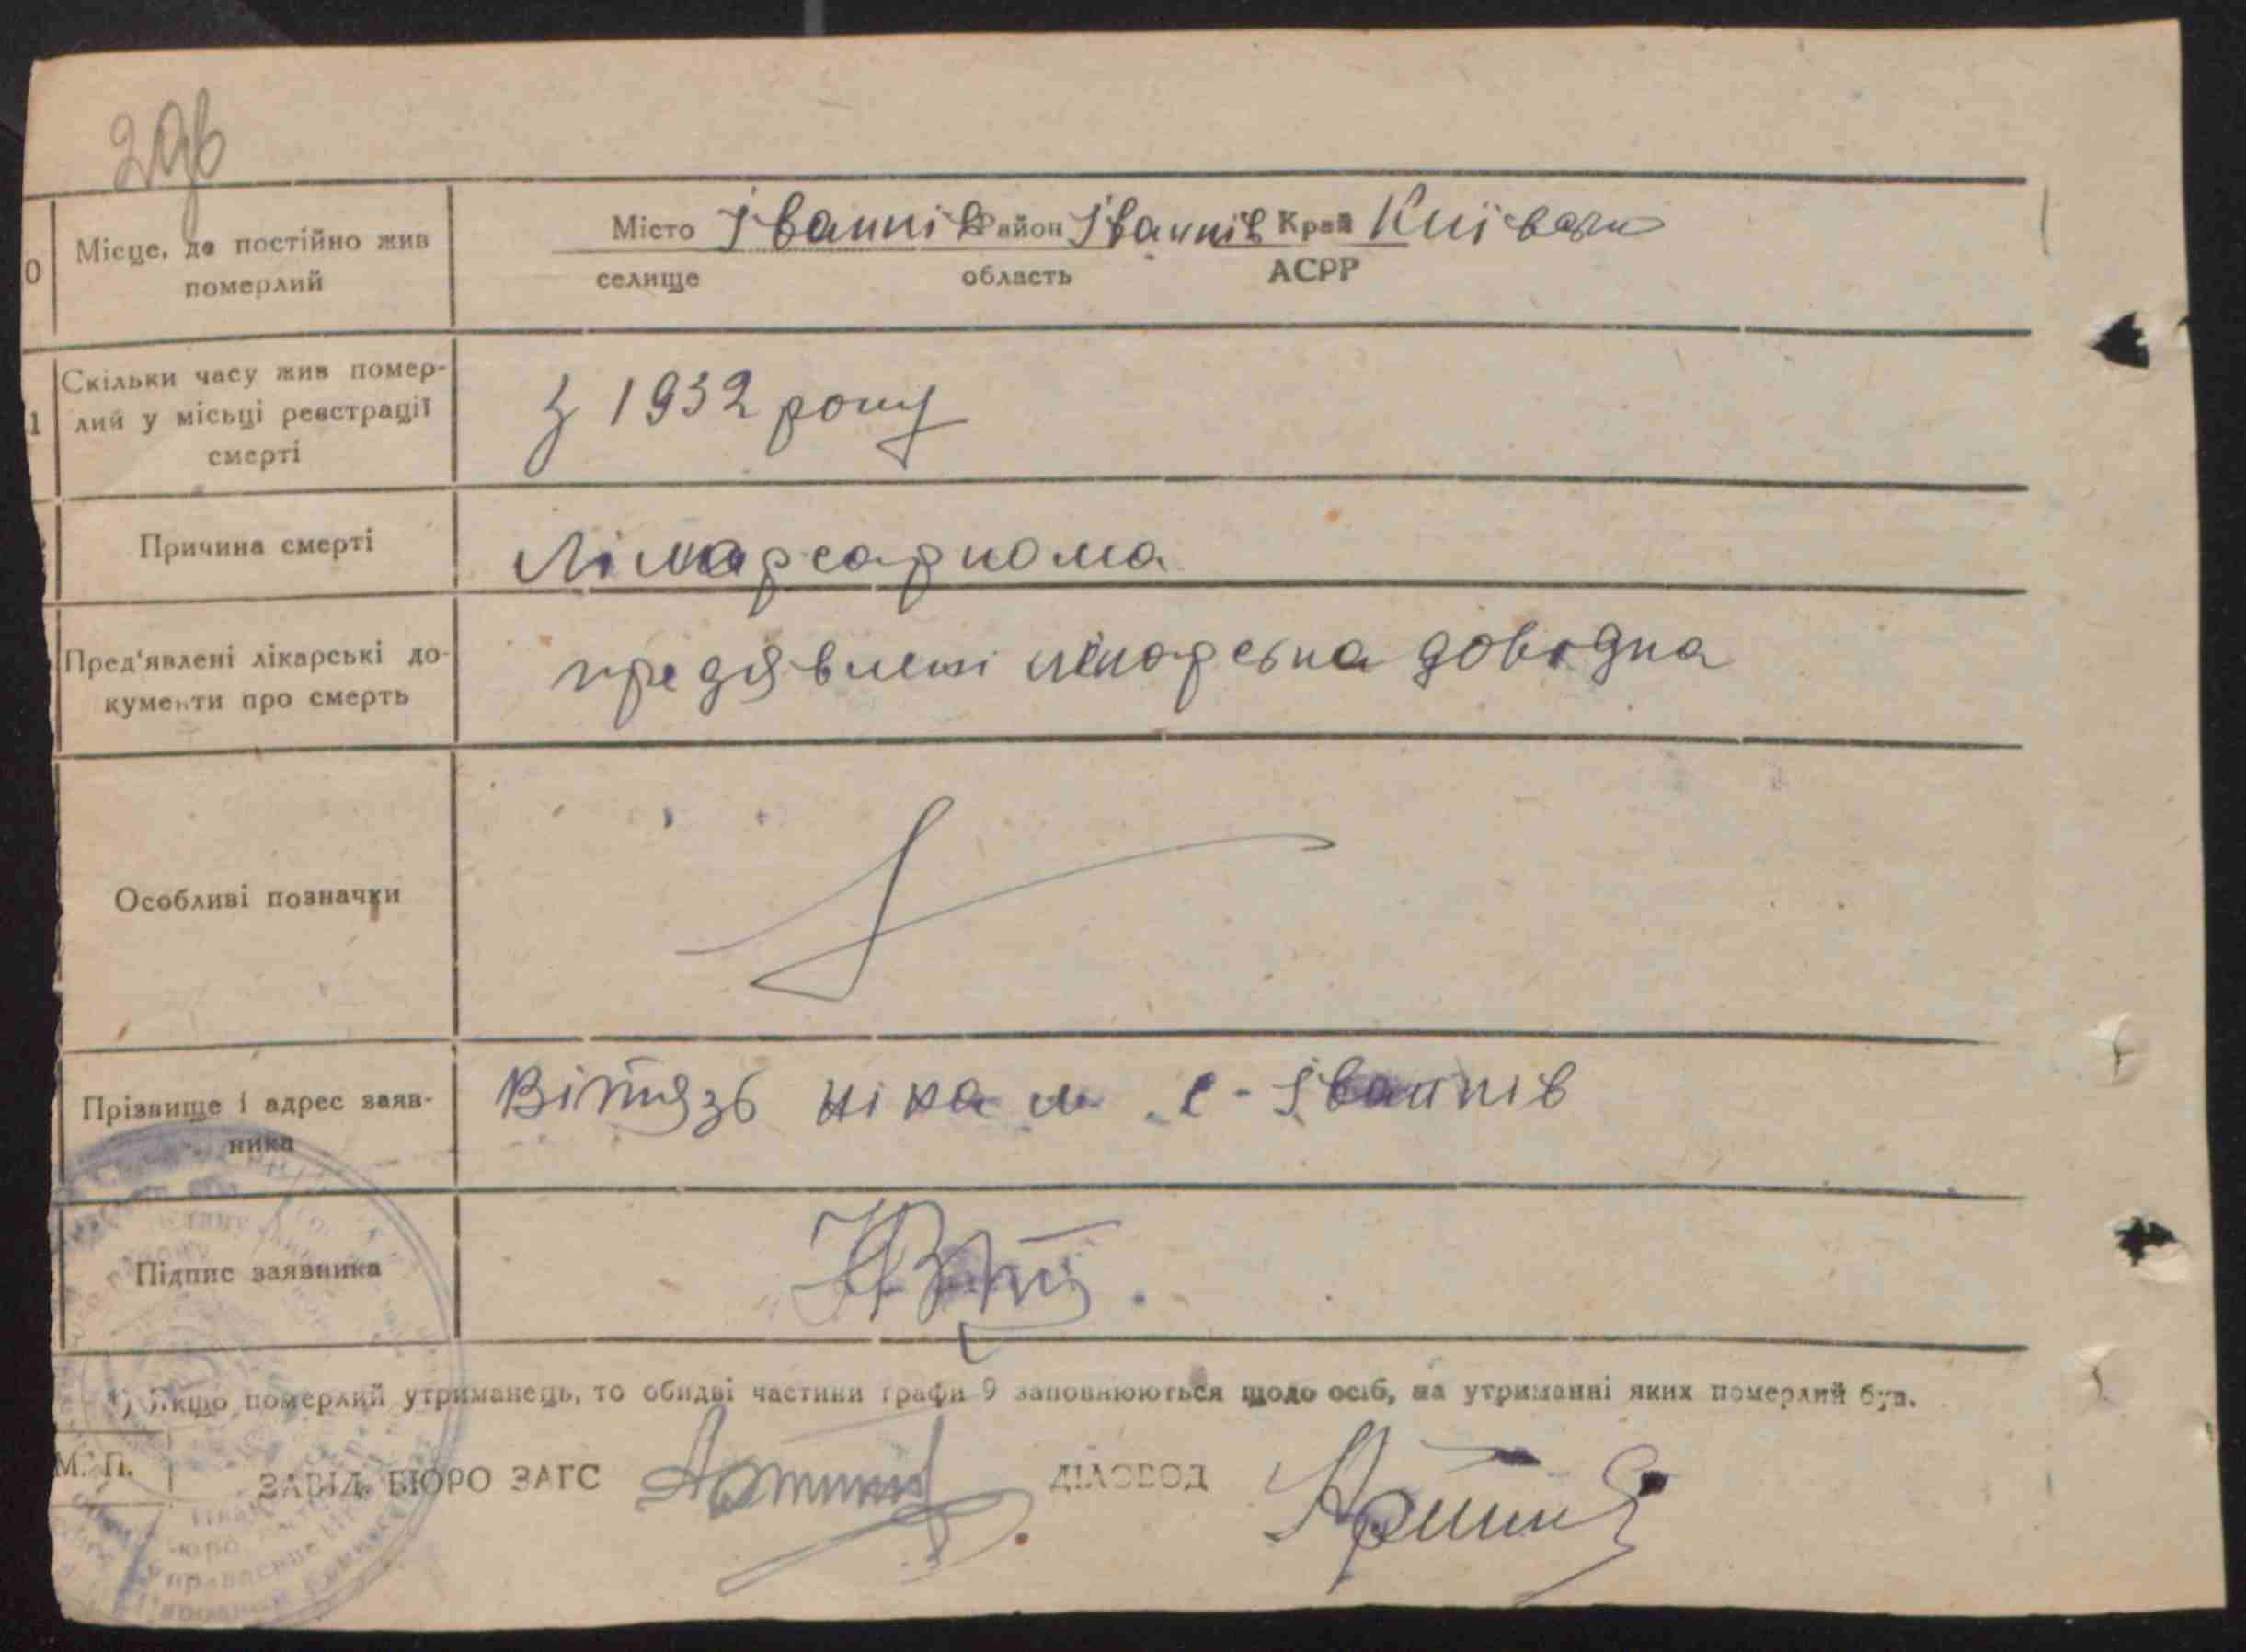 20в
0 Місце, де постійно жив померлий
Місто Іванків Район Іванків Край Київськ
селище область АСРР
1 Скільки часу жив померлий у місьці реєстрації смерті
З 1932 року
Причина смерті
Лімарсаркома
Пред'явлені лікарські документи про смерть
предявлені лікарська довідка
Особливі позначки
Прізвище і адрес заявника
Вітязь ніка м с-Іванків
Підпис заявника
¹) Якщо померлий утриманець, то обидві частини графи 9 заповнюються щодо осіб, на утриманні яких померлий був.
М. П.
ЗАВІД. БЮРО ЗАГС ДІЛОВОД